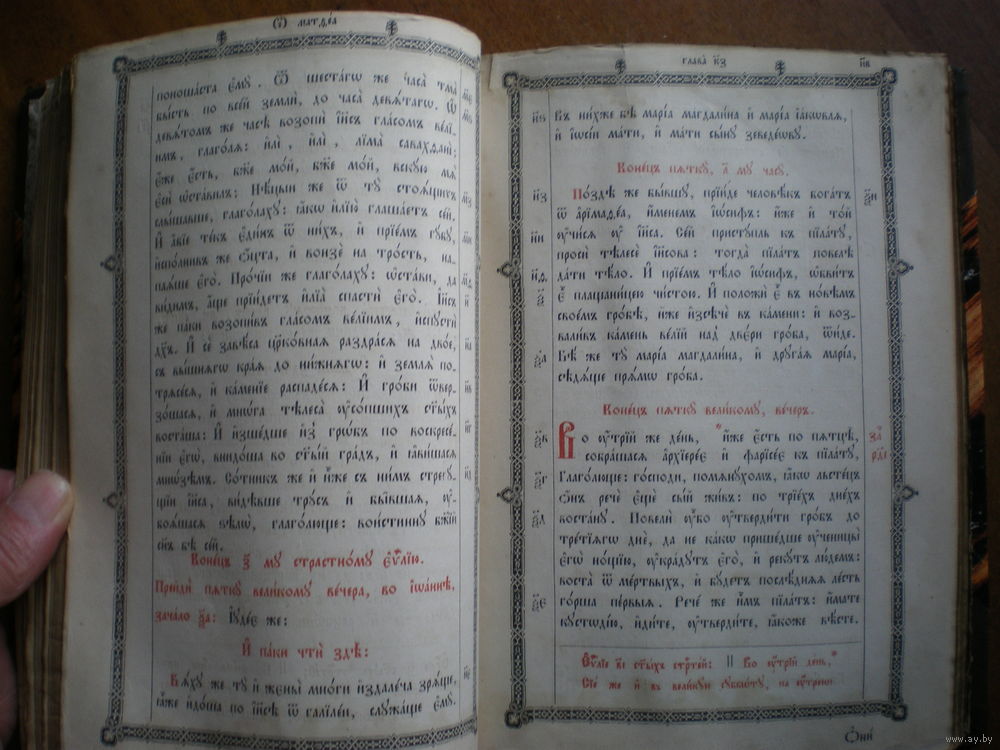 Ѿ матѳеа
поноша́ста є҆мꙋ̀. Ѿ шеста́гѡ же часа̀ тма̀
бы́сть по все́й землѝ, до часа̀ девѧ́тагѡ. Ѡ҆
девѧ́томъ же часѣ̀ возопѝ і҆и҃съ гла́сомъ ве́лі-
имъ, глаго́лѧ: и҆лѝ, и҆лѝ, лїма̀ савахѳанѝ:
є҆́же є҆́сть, бж҃е мо́й, бж҃е мо́й, вскꙋ́ю мѧ̀
є҆сѝ ѡ҆ста́вилъ: Нѣ́цыи же ѿ тꙋ̀ стоѧ́щихъ
слы́шавше, глаго́лахꙋ: ꙗ҆́кѡ и҆лїю̀ глаша́етъ се́й.
И҆ а҆́бїе те́къ є҆ди́нъ ѿ ни́хъ, и҆ прїе́мъ гꙋ́бꙋ,
и҆спо́лнивъ же ѻ҆́цта, и҆ вонзѐ на тро́сть, на-
паѧ́ше є҆го̀. Про́чїи же глаго́лахꙋ: ѡ҆ста́ви, да
ви́димъ, а҆́ще прїи́детъ и҆лїа̀ спастѝ є҆го̀. І҆и҃съ
же па́ки возопи́въ гла́сомъ ве́лїимъ, и҆спꙋстѝ
дх҃ъ. И҆ сѐ завѣ́са црк҃о́внаѧ раздра́сѧ на дво́е,
съ вы́шнѧгѡ кра́ѧ до ни́жнѧгѡ: и҆ землѧ̀ по-
трѧсе́сѧ, и҆ ка́менїе распаде́сѧ: И҆ гро́би ѿвер-
зо́шасѧ, и҆ мнѡ́га тѣлеса̀ ᲂу҆со́пшихъ ст҃ы́хъ
воста́ша: И҆ и҆зше́дше и҆з̾ грѡ́бъ по воскресе́-
нїи є҆гѡ̀, внидо́ша во ст҃ы́й гра́дъ, и҆ ꙗ҆ви́шасѧ
мнѡ́зѣмъ. Со́тникъ же и҆ и҆̀же съ ни́мъ стрегꙋ́-
щїи і҆и҃са, ви́дѣвше трꙋ́съ и҆ бы́вшаѧ, ᲂу҆-
боѧ́шасѧ ѕѣлѡ̀, глаго́люще: вои́стинꙋ бж҃їй
сн҃ъ бѣ̀ се́й.
Коне́цъ з҃ мꙋ стра́стномꙋ є҆ѵⷢ҇лїю.
Прейдѝ пѧткꙋ̀ вели́комꙋ ве́чера, во і҆ѡа́ннѣ,
зача́ло ѯ҃а: І҆ꙋде́є же:
И҆ па́ки чтѝ здѣ̀:
Бѧ́хꙋ же тꙋ̀ и҆ жены̀ мно́ги и҆здале́ча зрѧ́ще,
ꙗ҆̀же и҆до́ша по і҆и҃сѣ ѿ галїле́и, слꙋжа́ще є҆мꙋ̀.
глава̀ к҃з
н҃в
н҃ѕ Въ ни́хже бѣ̀ марі́а магдали́на и҆ марі́а і҆а́кѡвлѧ,
и҆ і҆ѡсі́и ма́ти, и҆ ма́ти сы́нꙋ зеведе́ѡвꙋ.
Коне́цъ пѧткꙋ̀, а҃ мꙋ часꙋ̀.
н҃з По́здѣ же бы́вшꙋ, прїи́де человѣ́къ бога́тъ
ѿ а҆рїмаѳе́а, и҆́менемъ і҆ѡ́сифъ: и҆́же и҆ то́й
н҃и ᲂу҆чи́сѧ ᲂу҆ і҆и҃са. Се́й пристꙋ́пль къ пїла́тꙋ,
просѝ тѣлесѐ і҆и҃сова: тогда̀ пїла́тъ повелѣ̀
н҃ѳ да́ти тѣ́ло. И҆ прїе́мъ тѣ́ло і҆ѡ́сифъ, ѡ҆бви́тъ
ѯ҃ є҆̀ плащани́цею чи́стою. И҆ положѝ є҆̀ въ но́вѣмъ
свое́мъ гро́бѣ, и҆́же и҆зсѣчѐ въ ка́мени: и҆ воз-
вали́въ ка́мень ве́лїй над̾ две́ри гро́ба, ѿи́де.
ѯ҃а Бѣ́ же тꙋ̀ марі́а магдали́на, и҆ дрꙋга́ѧ марі́а,
сѣдѧ́ще прѧ́мѡ гро́ба.
Коне́цъ пѧткꙋ̀ вели́комꙋ, ве́черъ.
ѯ҃в Во ᲂу҆́трїй же де́нь, *и҆́же є҆́сть по пѧтцѣ̀,
собра́шасѧ а҆рхїере́є и҆ фарїсе́є къ пїла́тꙋ,
ѯ҃г Глаго́люще: го́споди, помѧнꙋ́хомъ, ꙗ҆́кѡ льсте́цъ
ѻ҆́нъ речѐ є҆щѐ сы́й жи́въ: по трїе́хъ дне́хъ
ѯ҃д воста́нꙋ. Повелѝ ᲂу҆̀бо ᲂу҆тверди́ти гро́бъ до
тре́тїѧгѡ днѐ, да не ка́кѡ прише́дше ᲂу҆ченицы̀
є҆гѡ̀ но́щїю, ᲂу҆кра́дꙋтъ є҆го̀, и҆ рекꙋ́тъ лю́демъ:
воста̀ ѿ ме́ртвыхъ, и҆ бꙋ́детъ послѣ́днѧѧ ле́сть
ѯ҃є го́рша пе́рвыѧ. Рече́ же и҆̀мъ пїла́тъ: и҆́мате
кꙋстѡді́ю, и҆ди́те, ᲂу҆тверди́те, ꙗ҆́коже вѣ́сте.
Є҆ѵⷢ҇лїе в҃і ст҃ы́хъ стрⷭ҇те́й: || Во ᲂу҆́трїй де́нь,*
Сїе́ же и҆ в҃ вели́кꙋю сꙋббѡ́тꙋ, на ᲂу҆́трени.
Ѻ҆ни́
www.ay.by